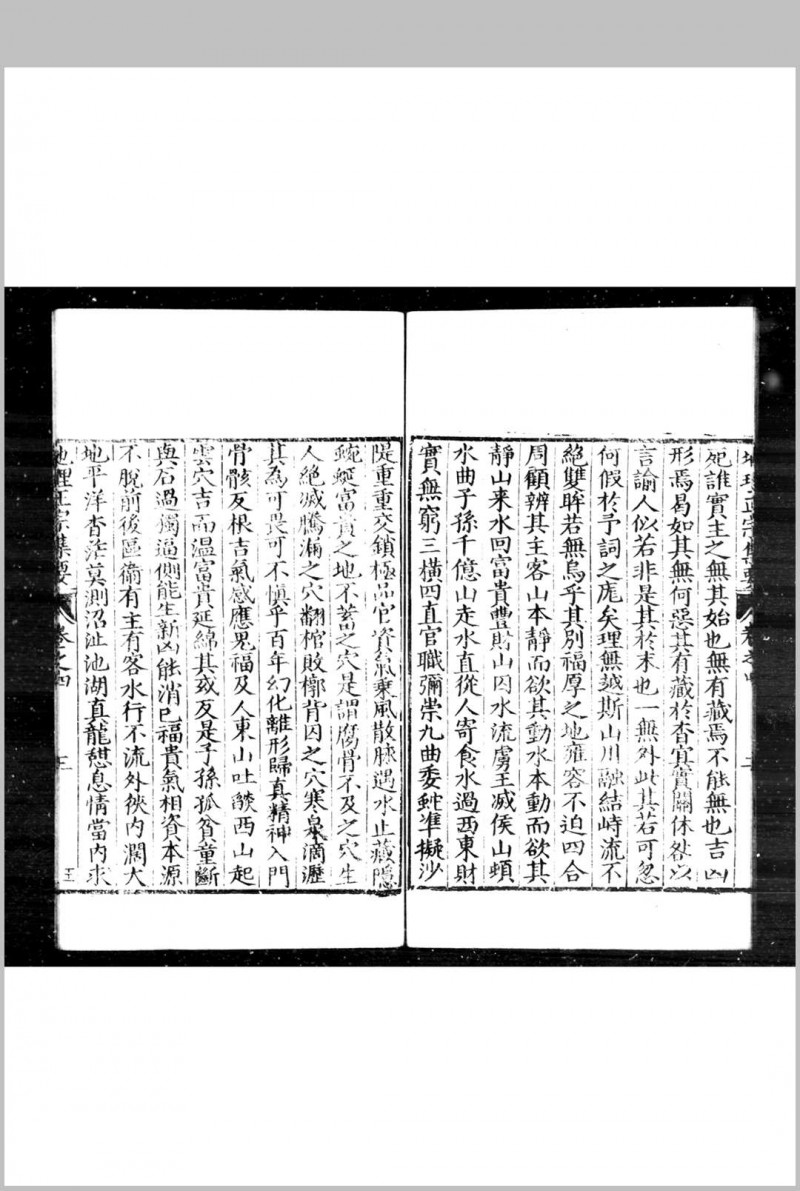 地理正宗集要 卷之四
兆誰實主之無其始也無有藏焉不能無也吉凶
形焉曷如其無何惡其有藏於杳冥實關休咎以
言諭人似若非是其於末也一無外此其若可忽
何假於予詞之庬矣理無越斯山川融結峙流不
絕雙眸若無烏乎其別福厚之地雍容不迫四合
周顧辨其主客山本静而欲其動水本動而欲其
静山来水回富貴豐財山囚水流虜王滅侯山頓
水曲子孫千億山走水直從人寄食水過西東財
寳無窮三横四直官職彌崇九曲委蛇準擬沙
隄重重交鎖極品官資氣乗風散脉遇水止藏隱
蜿蜒富貴之地不蓄之穴是謂腐骨不及之穴生
人絕滅騰漏之穴翻棺敗槨背囚之穴寒泉滴瀝
其為可畏可不慎乎百年幻化離形歸真精神入門
骨骸反根吉氣感應鬼福及人東山吐燄西山起
雲穴吉而温富貴延綿其或反是子孫狐貧童斷
與石過獨逼側能生新凶能消巳福貴氣相資本源
不脫前後區衛有主有客水行不流外狹内濶大
地平洋杳茫莫測沼沚池湖真龍憇息情當内求
地理正宗集要 卷之四